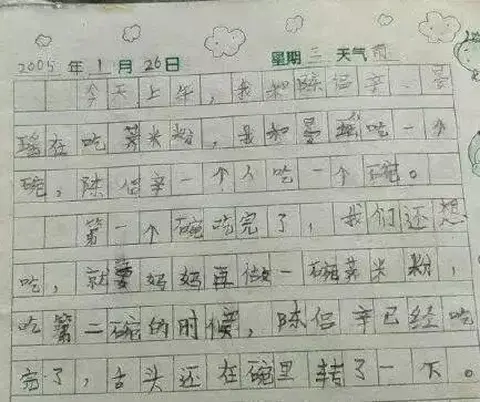 2005年1月26日 星期三 天气雨
今天上午，我和陈侣辛、曼
瑶在吃荚米粉，我和曼瑶吃一个
碗，陈侣辛一个人吃一个碗。
第一个碗吃完了，我们还想
吃，就要妈妈再做一碗荚米粉，
吃第二碗的时候，陈侣辛已经吃
完了，舌头还在碗里转了一下。